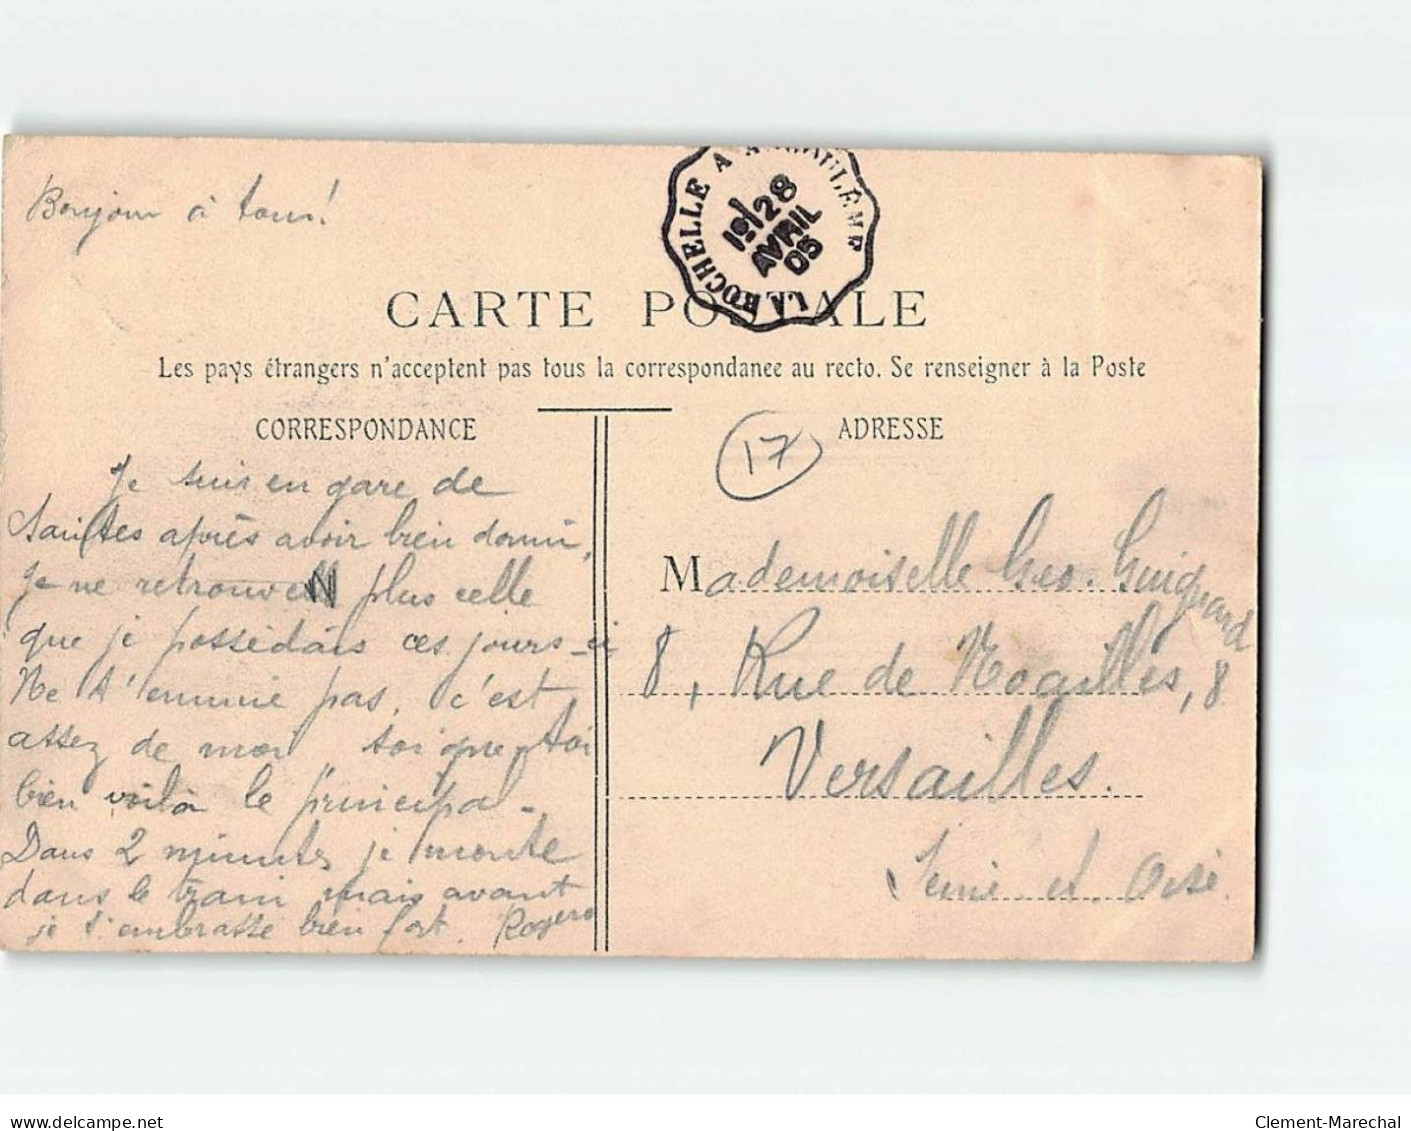 Bonjour à tous!
LA ROCHELLE A ANGOULÊME
1º/28
AVRIL
05
CARTE POSTALE
Les pays étrangers n'acceptent pas tous la correspondance au recto. Se renseigner à la Poste
CORRESPONDANCE
Je suis en gare de
Saintes après avoir bien dormi,
Je ne retrouve plus celle
que je possédais ces jours-ci
Ne t'ennuie pas, c'est
assez de moi soigne-toi
bien voilà le principal-
Dans 2 minutes je monte
dans le train mais avant
je t'embrasse bien fort. Roger
ADRESSE
17
Mademoiselle Geo. Guignard
8, Rue de Noailles, 8
Versailles.
Seine et Oise.
delcampe.net
Clement-Marechal